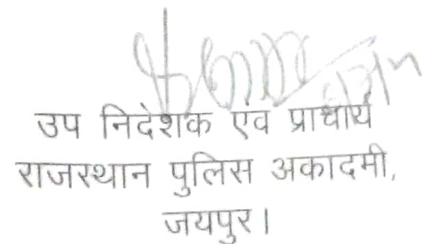 उप निदेशक एंव प्राचार्य
राजस्थान पुलिस अकादमी,
जयपुर।